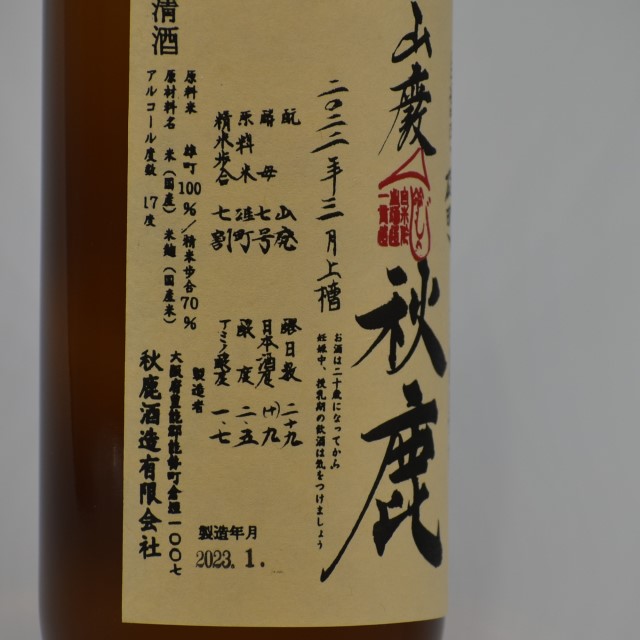 山廃
秋鹿
お酒は二十歳になってから
妊娠中、授乳期の飲酒は気をつけましょう
二〇二二年三月上槽
酛 山廃
酵母 七号
原料米 雄町
精米歩合 七割
醪日数 二十九
日本酒度 (+)九
酸度 二・五
アミノ酸度 一・七
清酒
原料米 雄町100%/精米歩合70%
原材料名 米(国産)米麹(国産米)
アルコール度数 17度
製造者
大阪府豊能郡能勢町倉垣一〇〇七
秋鹿酒造有限会社
製造年月
2023.1.